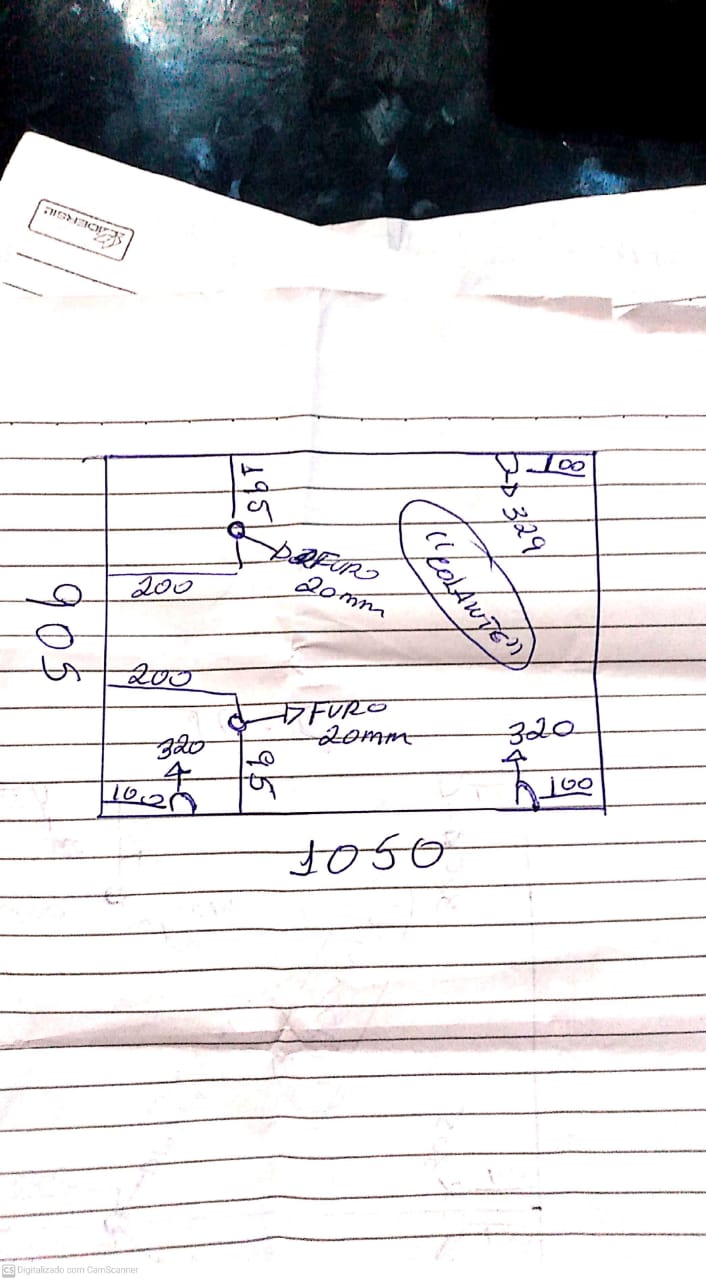 195
100
329
FURO
20mm
200
905
200
FURO
20mm
320
320
95
100
100
1050
CS Digitalizado com CamScanner